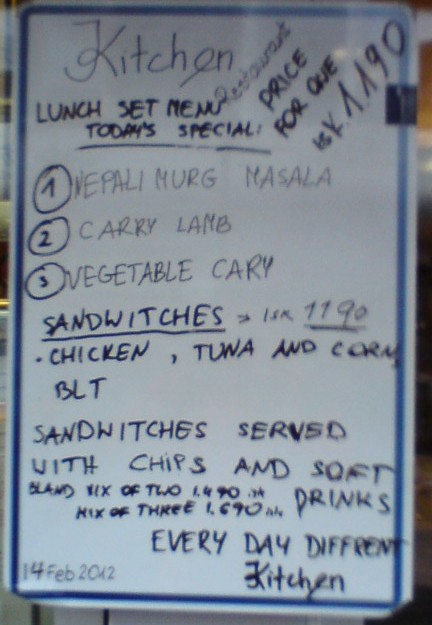 Kitchen
Restaurant
LUNCH SET MENU
TODAY'S SPECIAL:
PRICE
FOR ONE
ISK. 1.190
1 NEPALI MURG MASALA
2 CARRY LAMB
3 VEGETABLE CARY
SANDWITCHES → ISK 1190
• CHICKEN, TUNA AND CORN,
BLT
SANDWITCHES SERVED
WITH CHIPS AND SOFT
DRINKS
BLAND MIX OF TWO 1.490 isk
MIX OF THREE 1.690 isk
EVERY DAY DIFFRENT
Kitchen
14 Feb 2012